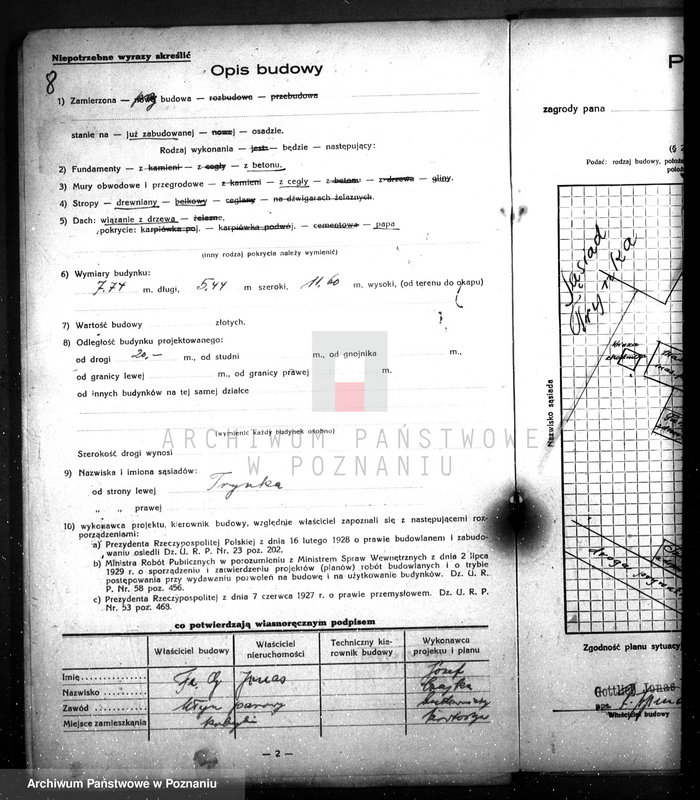 Niepotrzebne wyrazy skreślić
8
Opis budowy
1) Zamierzona — nowa budowa — rozbudowa — przebudowa
stanie na — już zabudowanej — nowej — osadzie.
Rodzaj wykonania — jest — będzie — następujący:
2) Fundamenty — z kamieni — z cegły — z betonu.
3) Mury obwodowe i przegrodowe — z kamieni — z cegły — z betonu — z drzewa — gliny.
4) Stropy — drewniany — belkowy — ceglany — na dźwigarach żelaznych.
5) Dach: wiązanie z drzewa — żelazne,
pokrycie: karpiówka poj. — karpiówka podwój. — cementowa — papa
(inny rodzaj pokrycia należy wymienić)
6) Wymiary budynku:
7.74 m. długi, 5,44 m szeroki, 11,60 m. wysoki, (od terenu do okapu)
7) Wartość budowy złotych.
8) Odległość budynku projektowanego:
od drogi 20,— m., od studni m., od gnojnika m.,
od granicy lewej m., od granicy prawej m.
od innych budynków na tej samej działce
(wymienić każdy budynek osobno)
Szerokość drogi wynosi
9) Nazwiska i imiona sąsiadów:
od strony lewej Trynka
„ „ prawej
10) wykonawca projektu, kierownik budowy, względnie właściciel zapoznali się z następującemi roz-
porządzeniami:
a) Prezydenta Rzeczypospolitej Polskiej z dnia 16 lutego 1928 o prawie budowlanem i zabudo-
waniu osiedli Dz. U. R. P. Nr. 23 poz. 202.
b) Ministra Robót Publicznych w porozumieniu z Ministrem Spraw Wewnętrznych z dnia 2 lipca
1929 r. o sporządzeniu i zatwierdzeniu projektów (planów) robót budowlanych i o trybie
postępowania przy wydawaniu pozwoleń na budowę i na użytkowanie budynków. Dz. U. R.
P. Nr. 58 poz. 456.
c) Prezydenta Rzeczypospolitej z dnia 7 czerwca 1927 r. o prawie przemysłowem. Dz. U. R. P.
Nr. 53 poz. 468.
co potwierdzają własnoręcznym podpisem
Właściciel budowy Właściciel nieruchomości Techniczny kie-rownik budowy Wykonawca projektu i planu
Imię Jonas Józef
Nazwisko
Zawód Młyn parowy
Miejsce zamieszkania
— 2 —
P
zagrody pana
(§ 2
Podać: rodzaj budowy, położe
położ
Sąsiad
Trynka
Nazwisko sąsiada
droga
Zgodność planu sytuacy
Gottlieb Jonas
ppa
Właściciel budowy
ARCHIWUM PAŃSTWOWE
W POZNANIU
Archiwum Państwowe w Poznaniu